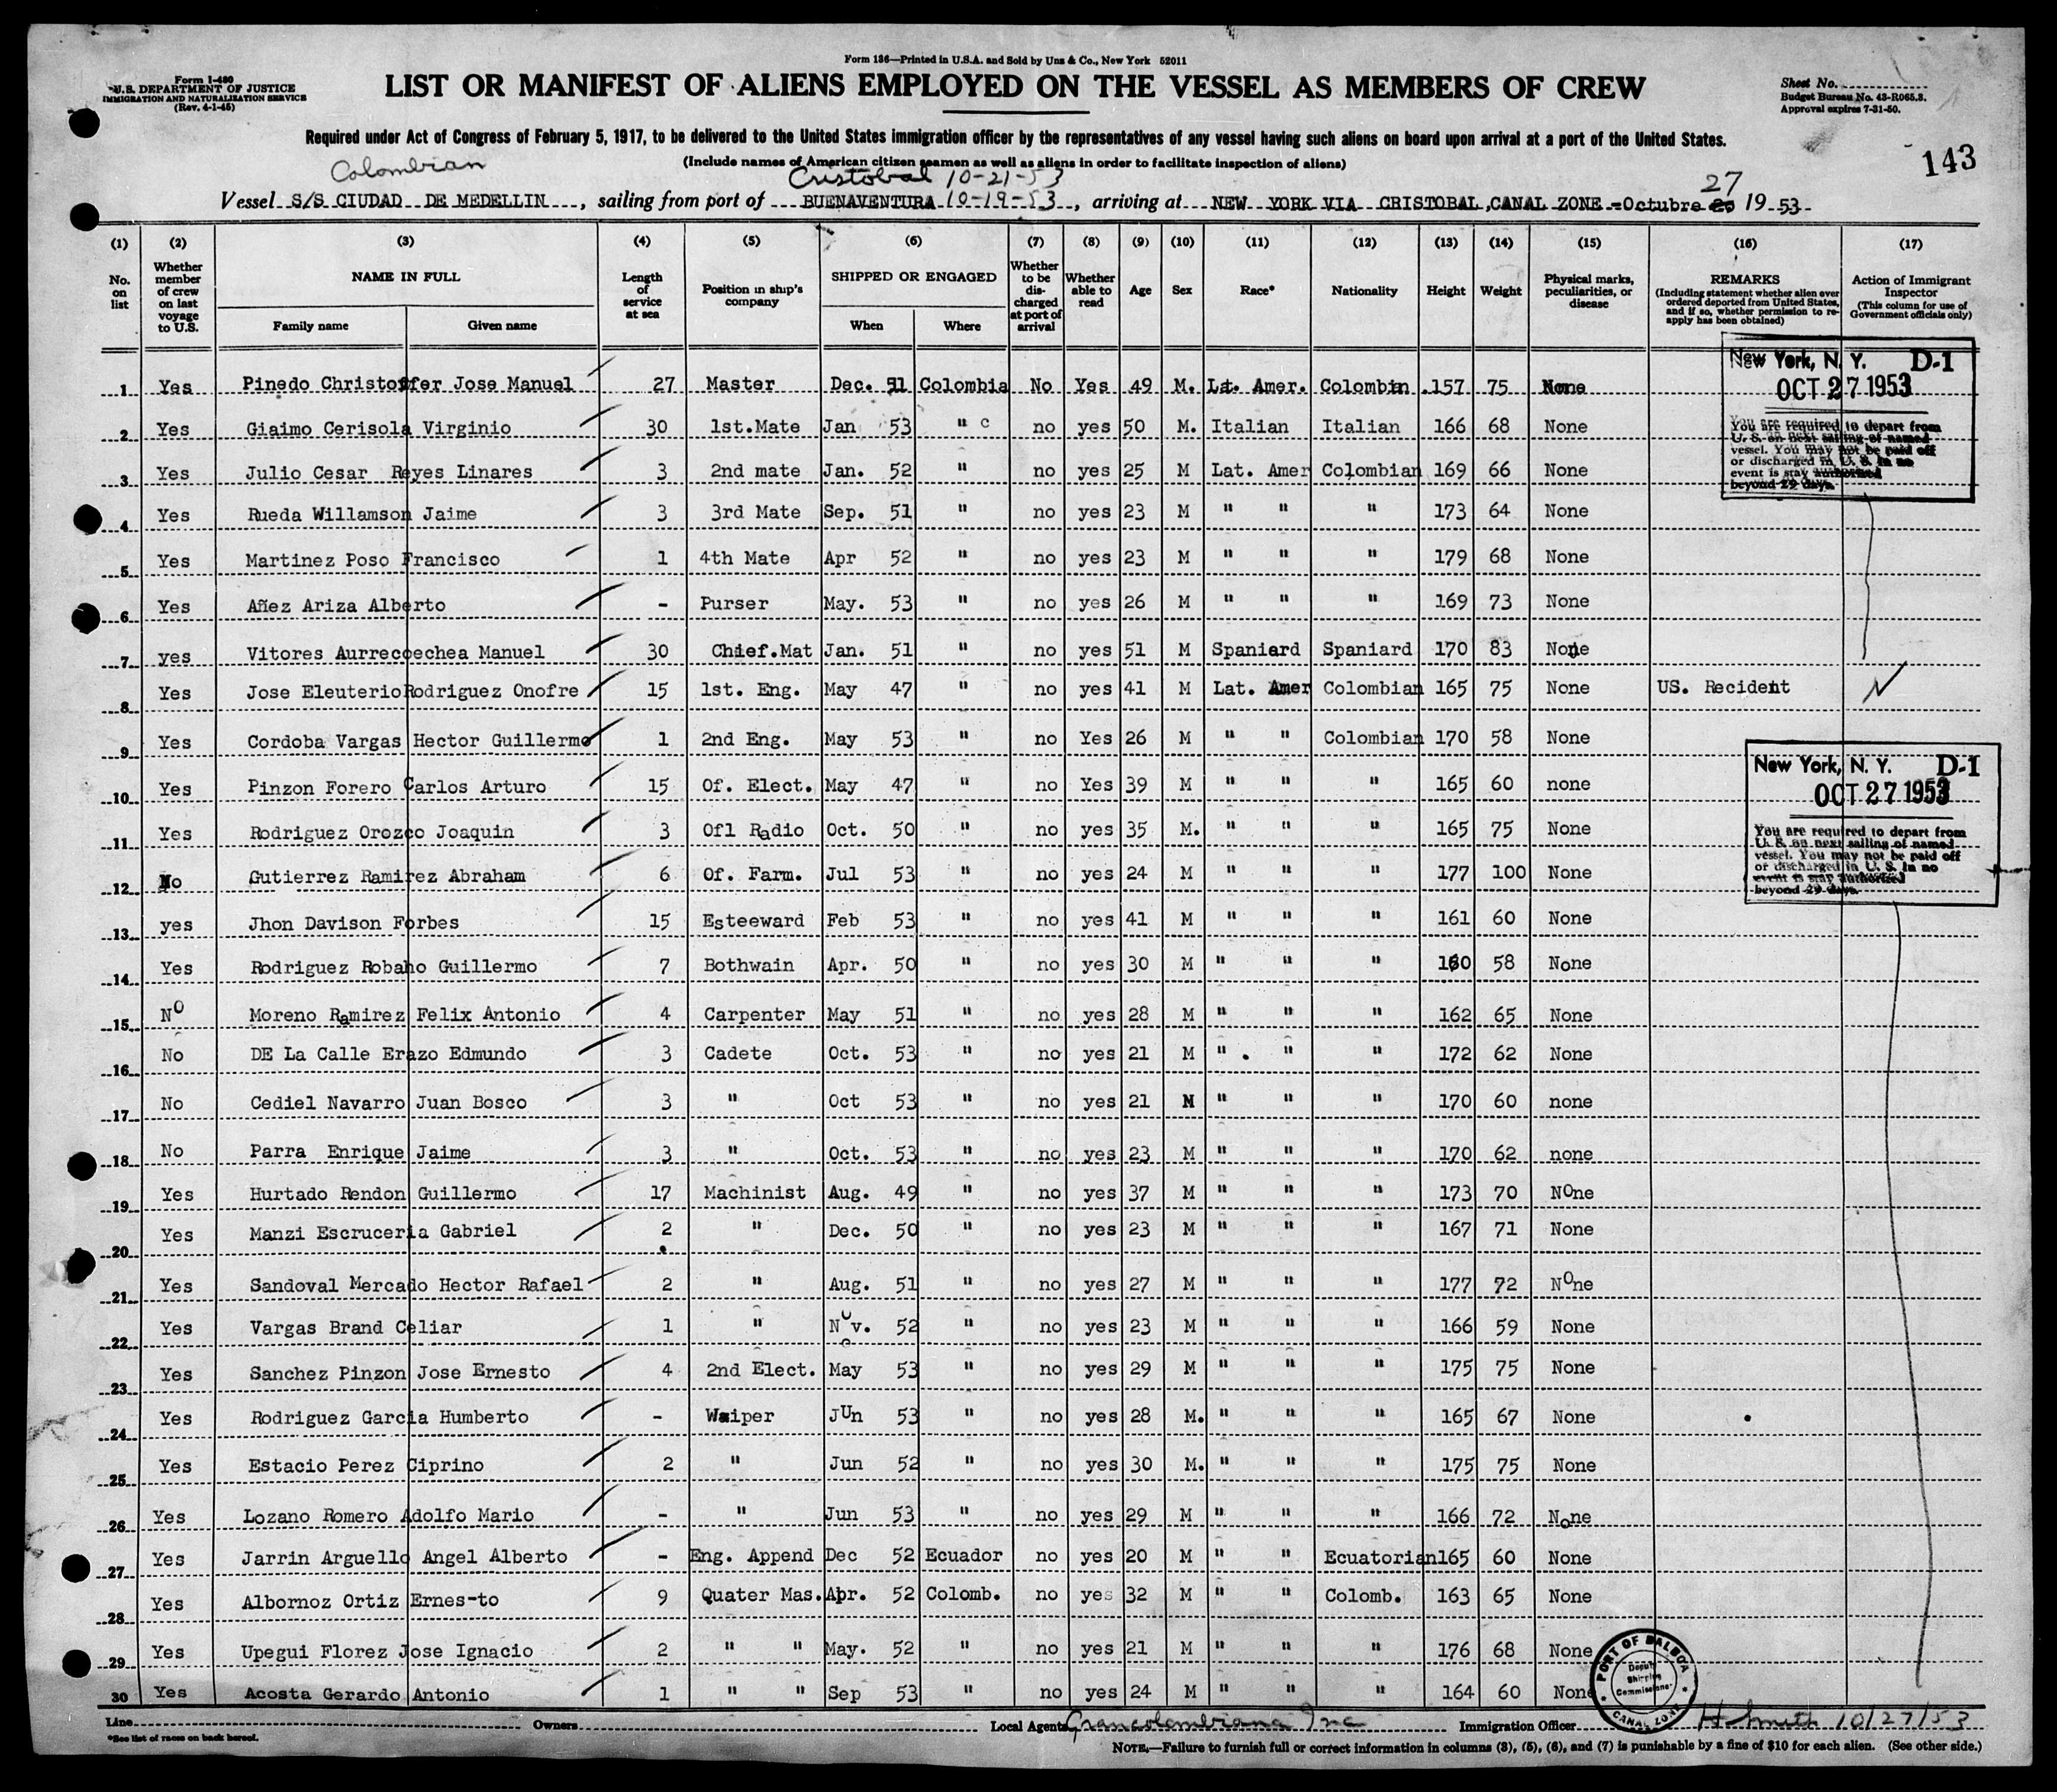 Form 136—Printed in U.S.A. and Sold by Unz & Co., New York 52011
Form I-480
U.S. DEPARTMENT OF JUSTICE
IMMIGRATION AND NATURALIZATION SERVICE
(Rev. 4-1-45)
LIST OR MANIFEST OF ALIENS EMPLOYED ON THE VESSEL AS MEMBERS OF CREW
Sheet No.
Budget Bureau No. 43-R065.3.
Approval expires 7-31-50.
Required under Act of Congress of February 5, 1917, to be delivered to the United States immigration officer by the representatives of any vessel having such aliens on board upon arrival at a port of the United States.
(Include names of American citizen seamen as well as aliens in order to facilitate inspection of aliens)
143
Colombian
Cristobal 10-21-53
27
Vessel S/S CIUDAD DE MEDELLIN, sailing from port of BUENAVENTURA 10-19-53, arriving at NEW YORK VIA CRISTOBAL, CANAL ZONE -Octubre 1953
(1) (2) (3) (4) (5) (6) (7) (8) (9) (10) (11) (12) (13) (14) (15) (16) (17)
No. on list
Whether member of crew on last voyage to U.S.
NAME IN FULL
Family name
Given name
Length of service at sea
Position in ship's company
SHIPPED OR ENGAGED
When
Where
Whether to be discharged at port of arrival
Whether able to read
Age
Sex
Race*
Nationality
Height
Weight
Physical marks, peculiarities, or disease
REMARKS
(Including statement whether alien ever ordered deported from United States, and if so, whether permission to reapply has been obtained)
Action of Immigrant Inspector
(This column for use of Government officials only)
1 Yes Pinedo Christoffer Jose Manuel 27 Master Dec. 51 Colombia No Yes 49 M. Lt. Amer. Colombin 157 75 None
2 Yes Giaimo Cerisola Virginio 30 1st.Mate Jan 53 " c no yes 50 M. Italian Italian 166 68 None
3 Yes Julio Cesar Reyes Linares 3 2nd mate Jan. 52 " no yes 25 M Lat. Amer Colombian 169 66 None
4 Yes Rueda Willamson Jaime 3 3rd Mate Sep. 51 " no yes 23 M " " " 173 64 None
5 Yes Martinez Poso Francisco 1 4th Mate Apr 52 " no yes 23 M " " " 179 68 None
6 Yes Añez Ariza Alberto - Purser May. 53 " no yes 26 M " " " 169 73 None
7 yes Vitores Aurrecoechea Manuel 30 Chief.Mat Jan. 51 " no yes 51 M Spaniard Spaniard 170 83 None
8 Yes Jose Eleuterio Rodriguez Onofre 15 1st. Eng. May 47 " no yes 41 M Lat. Amer Colombian 165 75 None US. Recident
9 Yes Cordoba Vargas Hector Guillermo 1 2nd Eng. May 53 " no Yes 26 M " " Colombian 170 58 None
10 Yes Pinzon Forero Carlos Arturo 15 Of. Elect. May 47 " no Yes 39 M " " " 165 60 none
11 Yes Rodriguez Orozco Joaquin 3 Ofl Radio Oct. 50 " no yes 35 M. " " " 165 75 None
12 No Gutierrez Ramirez Abraham 6 Of. Farm. Jul 53 " no yes 24 M " " " 177 100 None
13 yes Jhon Davison Forbes 15 Esteeward Feb 53 " no yes 41 M " " " 161 60 None
14 Yes Rodriguez Robaho Guillermo 7 Bothwain Apr. 50 " no yes 30 M " " " 160 58 None
15 No Moreno Ramirez Felix Antonio 4 Carpenter May 51 " no yes 28 M " " " 162 65 None
16 No DE La Calle Erazo Edmundo 3 Cadete Oct. 53 " no yes 21 M " . " " 172 62 None
17 No Cediel Navarro Juan Bosco 3 " Oct 53 " no yes 21 M " " " 170 60 none
18 No Parra Enrique Jaime 3 " Oct. 53 " no yes 23 M " " " 170 62 none
19 Yes Hurtado Rendon Guillermo 17 Machinist Aug. 49 " no yes 37 M " " " 173 70 NOne
20 Yes Manzi Escruceria Gabriel 2 " Dec. 50 " no yes 23 M " " " 167 71 None
21 Yes Sandoval Mercado Hector Rafael 2 " Aug. 51 " no yes 27 M " " " 177 72 NOne
22 Yes Vargas Brand Celiar 1 " Nov. 52 " no yes 23 M " " " 166 59 None
23 Yes Sanchez Pinzon Jose Ernesto 4 2nd Elect. May 53 " no yes 29 M " " " 175 75 None
24 Yes Rodriguez Garcia Humberto - Waiper JUn 53 " no yes 28 M. " " " 165 67 None
25 Yes Estacio Perez Ciprino 2 " Jun 52 " no yes 30 M. " " " 175 75 None
26 Yes Lozano Romero Adolfo Mario - " Jun 53 " no yes 29 M " " " 166 72 None
27 Yes Jarrin Arguello Angel Alberto - Eng. Append Dec 52 Ecuador no yes 20 M " " Ecuatorian 165 60 None
28 Yes Albornoz Ortiz Ernes-to 9 Quater Mas. Apr. 52 Colomb. no yes 32 M " " Colomb. 163 65 None
29 Yes Upegui Florez Jose Ignacio 2 " " May. 52 " no yes 21 M " " " 176 68 None
30 Yes Acosta Gerardo Antonio 1 " " Sep 53 " no yes 24 M " " " 164 60 None
New York, N. Y. D-1
OCT 27 1953
You are required to depart from
U. S. on next sailing of named
vessel. You may not be paid off
or discharged in U. S. In no
event is stay authorized
beyond 29 days.
New York, N. Y. D-1
OCT 27 1953
You are required to depart from
U. S. on next sailing of named
vessel. You may not be paid off
or discharged in U. S. In no
event is stay authorized
beyond 29 days.
PORT OF BALBOA
Deputy
Shipping
Commissioner
CANAL ZONE
Line Owners Local Agents Grancolombiana Inc Immigration Officer H Smith 10/27/53
*See list of races on back hereof.
NOTE.—Failure to furnish full or correct information in columns (3), (5), (6), and (7) is punishable by a fine of $10 for each alien. (See other side.)